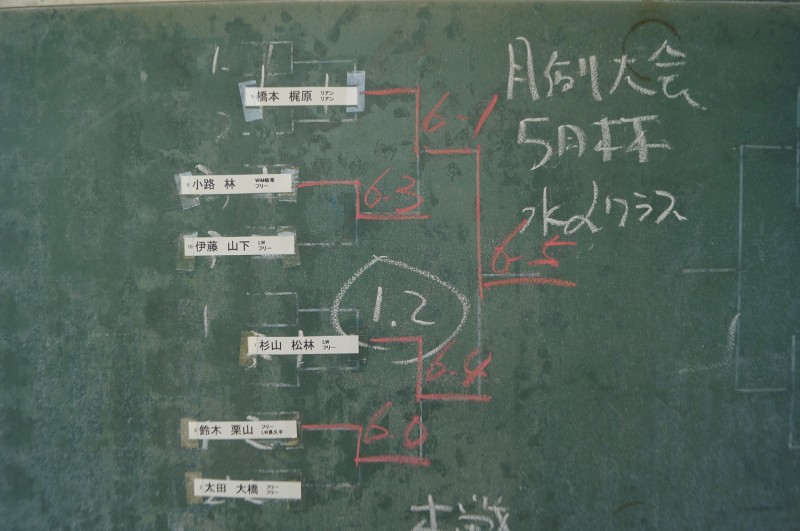 月例大会
5月杯
水αクラス
1.
橋本 梶原 リアン リアン
6-1
2.
小路 林 WM岐阜 フリー
6.3
伊藤 山下 LW フリー
6-5
1.2
杉山 松林 LW フリー
6.4
鈴木 栗山 フリー LW長久手
6.0
太田 大橋 フリー フリー
本戦